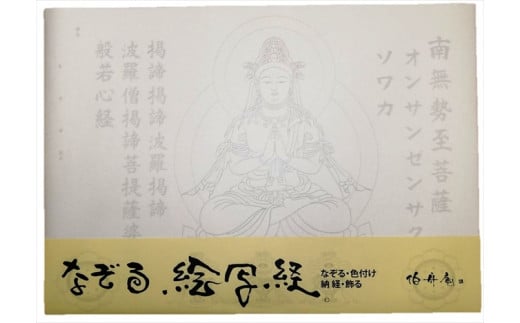 南無勢至菩薩
オンサンゼンサク
ソワカ
掲諦掲諦波羅掲諦
波羅僧掲諦菩提薩婆
般若心経
なぞる 絵写経
なぞる・色付け
納経・飾る